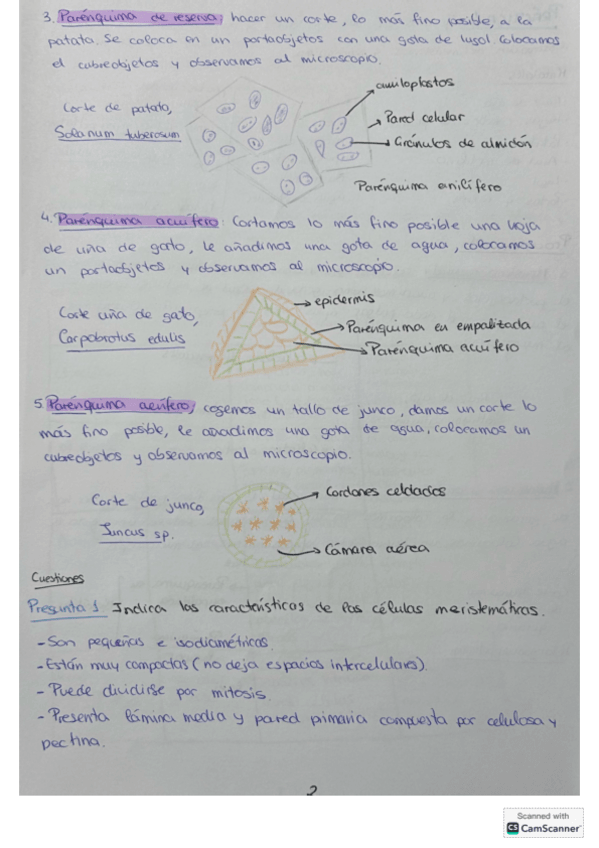 3. Parénquima de reserva; hacer un corte, lo más fino posible, a la
patata. Se coloca en un portaobjetos con una gota de lugol. Colocamos
el cubreobjetos y observamos al microscopio.
Corte de patata,
Solanum tuberosum
amiloplastos
Pared celular
Gránulos de almidón
Parénquima amilífero
4. Parénquima acuífero: Cortamos lo más fino posible una hoja
de uña de gato, le añadimos una gota de agua, colocamos
un portaobjetos y observamos al microscopio.
Corte uña de gato,
Carpobrotus edulis
epidermis
Parénquima en empalizada
Parénquima acuífero
5. Parénquima aerífero; cogemos un tallo de junco, damos un corte lo
más fino posible, le añadimos una gota de agua, colocamos un
cubreobjetos y observamos al microscopio.
Corte de junco,
Juncus sp.
Cordones celulacios
Cámara aérea
Cuestiones
Pregunta 1 Indica las características de las células meristemáticas.
- Son pequeñas e isodiamétricas.
- Están muy compactas (no deja espacios intercelulares).
- Puede dividirse por mitosis.
- Presenta lámina media y pared primaria compuesta por celulosa y
pectina.
2
Scanned with
CS CamScanner